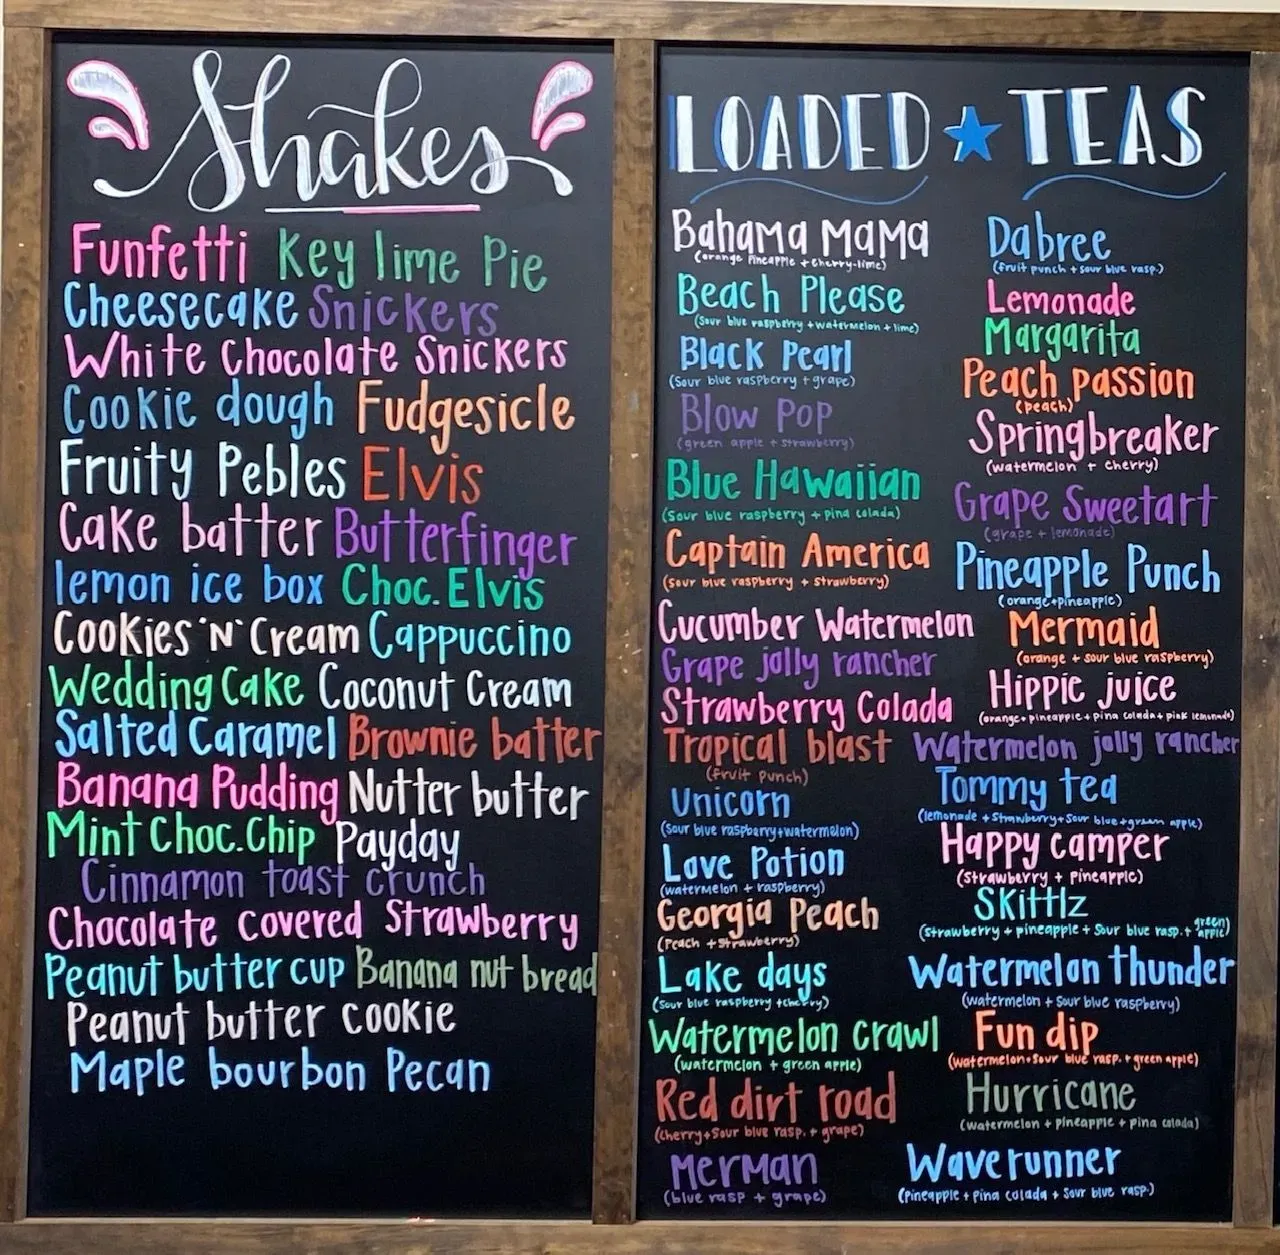 Shakes
Funfetti Key lime Pie
Cheesecake Snickers
White Chocolate Snickers
Cookie dough Fudgesicle
Fruity Pebles Elvis
Cake batter Butterfinger
lemon ice box Choc. Elvis
Cookies 'N' Cream Cappuccino
Wedding Cake Coconut Cream
Salted Caramel Brownie batter
Banana Pudding Nutter butter
Mint Choc. Chip Payday
Cinnamon toast crunch
Chocolate covered Strawberry
Peanut butter cup Banana nut bread
Peanut butter cookie
Maple bourbon Pecan
LOADED ★ TEAS
Bahama Mama
(orange Pineapple + cherry-lime)
Beach Please
(Sour blue raspberry + watermelon + lime)
Black Pearl
(Sour blue raspberry + grape)
Blow Pop
(green apple + strawberry)
Blue Hawaiian
(Sour blue raspberry + pina colada)
Captain America
(sour blue raspberry + strawberry)
Cucumber Watermelon
Grape jolly rancher
Strawberry Colada
Tropical blast
(fruit punch)
Unicorn
(sour blue raspberry+watermelon)
Love Potion
(watermelon + raspberry)
Georgia Peach
(Peach + Strawberry)
Lake days
(Sour blue raspberry + cherry)
Watermelon crawl
(watermelon + green apple)
Red dirt road
(cherry+Sour blue rasp. + grape)
Merman
(blue rasp + grape)
Dabree
(fruit punch + sour blue rasp.)
Lemonade
Margarita
Peach passion
(peach)
Springbreaker
(watermelon + cherry)
Grape Sweetart
(grape + lemonade)
Pineapple Punch
(orange+pineapple)
Mermaid
(orange + sour blue raspberry)
Hippie juice
(orange+pineapple + pina colada + pink lemonade)
Watermelon jolly rancher
Tommy tea
(lemonade + Strawberry + Sour blue + green apple)
Happy camper
(Strawberry + pineapple)
SKittlz
(strawberry + pineapple + Sour blue rasp. + green apple)
Watermelon thunder
(watermelon + sour blue raspberry)
Fun dip
(watermelon+sour blue rasp. + green apple)
Hurricane
(watermelon + pineapple + pina colada)
Waverunner
(Pineapple + Pina Colada + Sour blue rasp.)